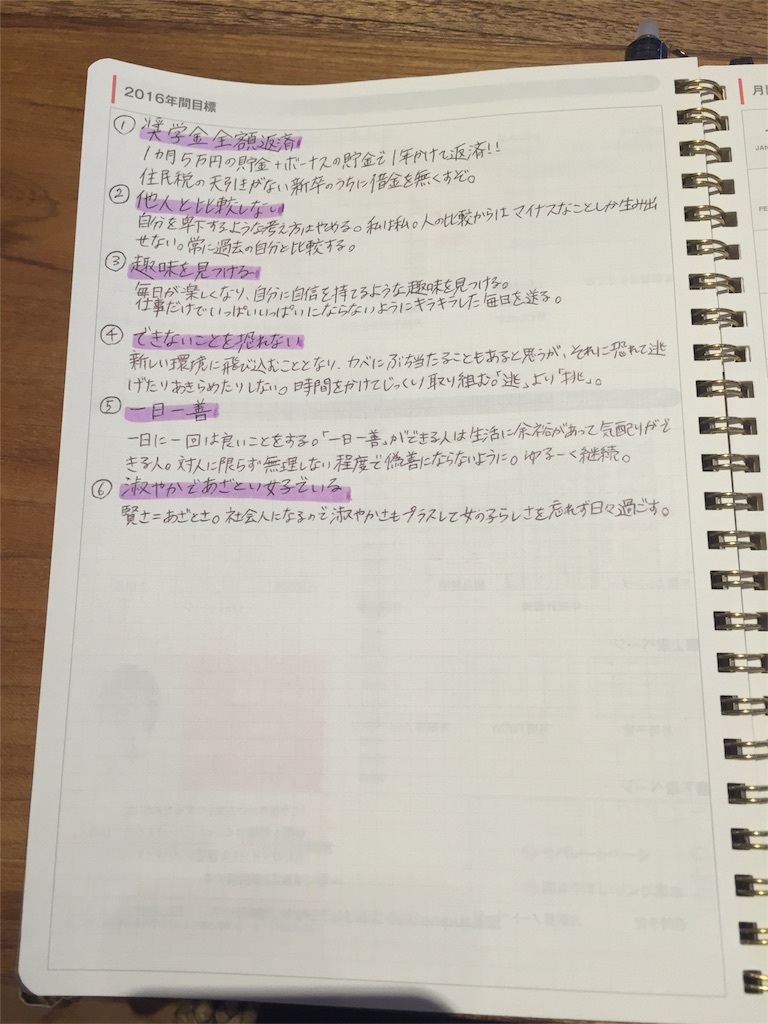 2016年間目標
① 奨学金全額返済
1カ月5万円の貯金+ボーナスの貯金で1年かけて返済!!
住民税の天引きがない新卒のうちに借金を無くすぞ。
② 他人と比較しない
自分を卑下するような考え方はやめる。私は私。人の比較からはマイナスなことしか生み出
せない。常に過去の自分と比較する。
③ 趣味を見つける
毎日が楽しくなり、自分に自信を持てるような趣味を見つける。
仕事だけでいっぱいいっぱいにならないようにキラキラした毎日を送る。
④ できないことを恐れない
新しい環境に飛び込むこととなり、カベにぶち当たることもあると思うが、それに恐れて逃
げたりあきらめたりしない。時間をかけてじっくり取り組む。「逃」より「挑」。
⑤ 一日一善
一日に一回は良いことをする。「一日一善」ができる人は生活に余裕があって気配りがで
きる人。対人に限らず無理しない程度で偽善にならないように。ゆるーく継続。
⑥ 淑やかであざとい女子でいる
賢さ=あざとさ。社会人になるので淑やかさもプラスして女の子らしさを忘れず日々過ごす。
月
JAN